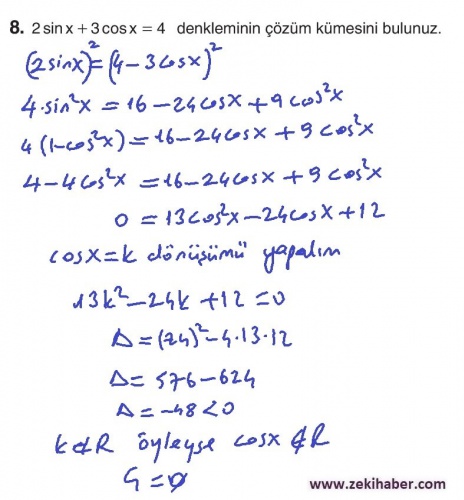 8. 2 sin x + 3 cos x = 4 denkleminin çözüm kümesini bulunuz.
(2sinx)² = (4 - 3cosx)²
4.sin²x = 16 - 24cosx + 9cos²x
4(1-cos²x) = 16 - 24cosx + 9cos²x
4 - 4cos²x = 16 - 24cosx + 9cos²x
0 = 13cos²x - 24cosx + 12
cosx = k dönüşümü yapalım
13k² - 24k + 12 = 0
Δ = (24)² - 4.13.12
Δ = 576 - 624
Δ = -48 < 0
k ∉ R öyleyse cosx ∉ R
Ç = ∅
www.zekihaber.com